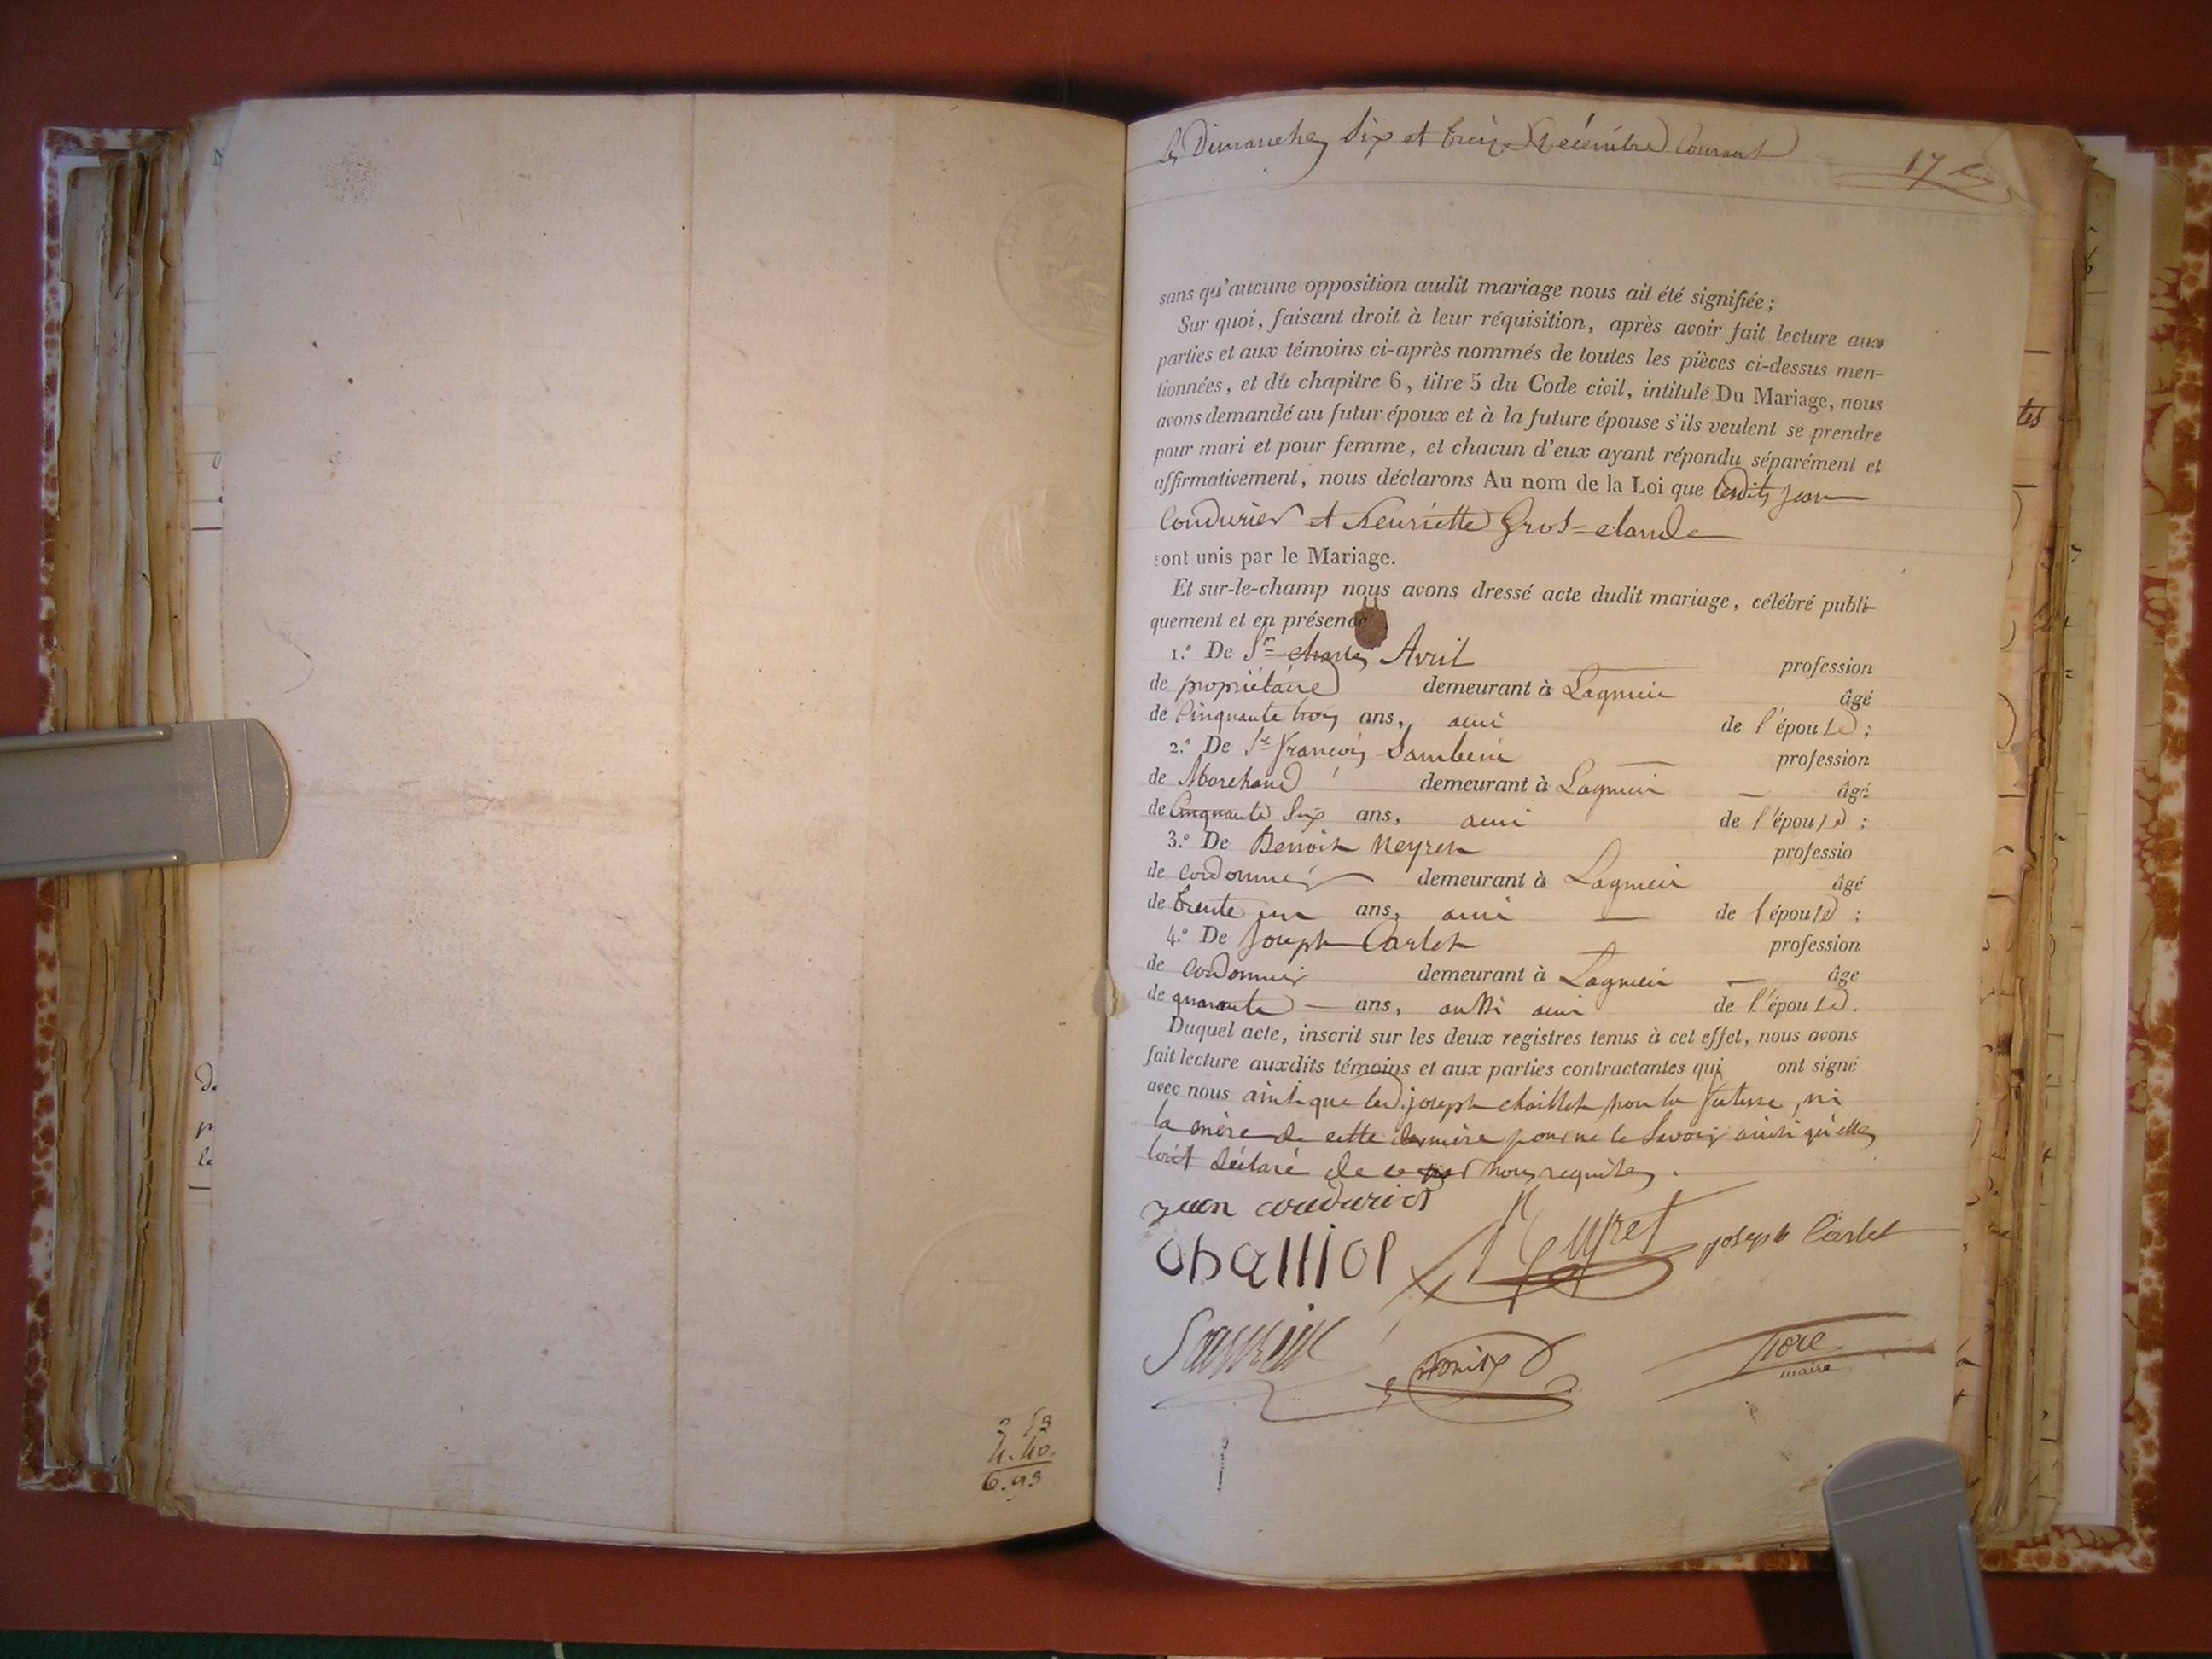 2 53
4.40.
6.93
les Dimanches Six et treize Décembre Courant
17
sans qu'aucune opposition audit mariage nous ait été signifiée;
Sur quoi, faisant droit à leur réquisition, après avoir fait lecture aux
parties et aux témoins ci-après nommés de toutes les pièces ci-dessus men-
tionnées, et du chapitre 6, titre 5 du Code civil, intitulé Du Mariage, nous
avons demandé au futur époux et à la future épouse s'ils veulent se prendre
pour mari et pour femme, et chacun d'eux ayant répondu séparément et
affirmativement, nous déclarons Au nom de la Loi que lesdits jean
Condurier et henriette Gros=claude
sont unis par le Mariage.
Et sur-le-champ nous avons dressé acte dudit mariage, célébré publi-
quement et en présence
1.º De Sr charles Avril profession
de propriétaire demeurant à Lagnieu âgé
de Cinquante trois ans, ami de l'épouse;
2.º De Sr françois Sambein profession
de Marchand demeurant à Lagnieu âgé
de Cinquante Six ans, ami de l'épouse;
3.º De Benoit Neyret professio
de cordonnier demeurant à Lagnieu âgé
de trente un ans, ami de l'épouse;
4.º De Joseph Carlet profession
de cordonnier demeurant à Lagnieu âge
de quarante ans, aussi ami de l'épouse.
Duquel acte, inscrit sur les deux registres tenus à cet effet, nous avons
fait lecture auxdits témoins et aux parties contractantes qui ont signé
avec nous ainsi que led. joseph chaillet non la future, ni
la mère de cette dernière pour ne le Savoir ainsi qu'elles
l'ont déclaré de ce par nous requises.
jean condurier
Neyret
joseph Carlet
Sambein
maire